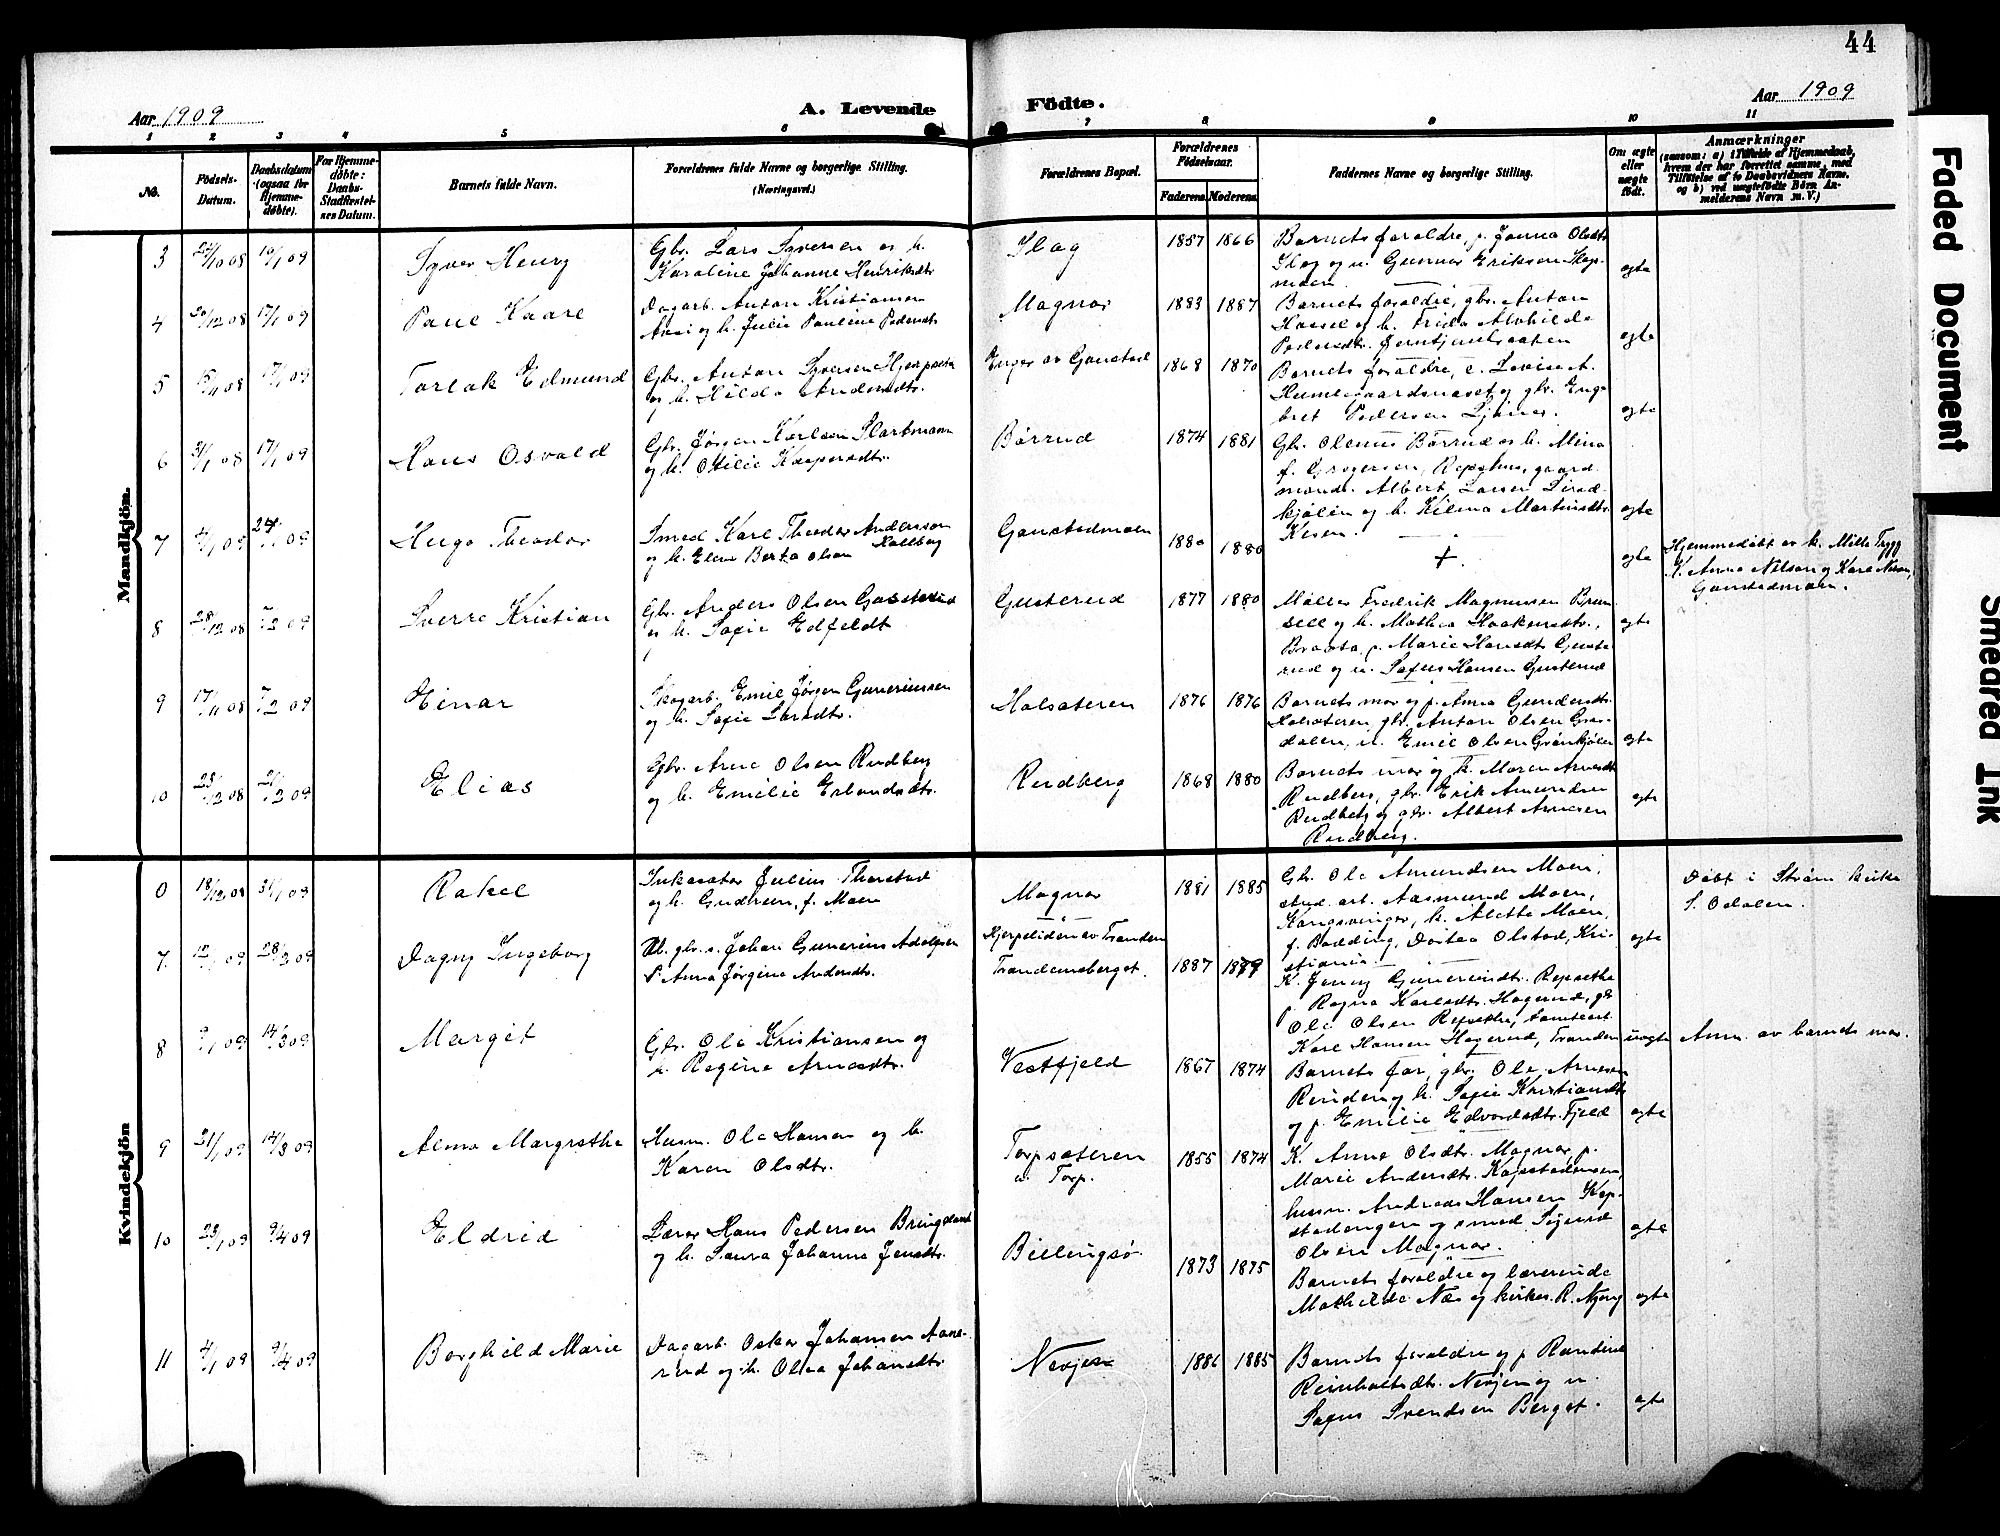 44
Aar 1909
A. Levende
Födte.
Aar 1909
1 2 3 4 5 6 7 8 9 10 11
No.
Födsels-
Datum.
Daabsdatum
(ogsaa for
Hjemme-
døbte).
For Hjemme-
døbte:
Daabs-
Stadfæstel-
ses Datum.
Barnets fulde Navn.
Forældrenes fulde Navne og borgerlige Stilling.
(Næringsvei.)
Forældrenes Bopæl.
Forældrenes
Födselsaar.
Faderens
Moderens
Faddernes Navne og borgerlige Stilling.
Om ægte
eller
uægte
født.
Anmærkninger
(saasom: a) i Tilfælde af Hjemmedaab,
hvem der har forrettet samme, med
Tilføielse af to Daabsvidners Navne,
og b) ved uægtefødte Börn An-
melderens Navn m. V.)
Mandkjön.
3
Syver Henry
Gbr. Lars Syversen og h.
Karoline Johanne Henriksdtr
Skog
1857 1866
Barnets forældre, p. Janna Olsdtr
Skog og u. Gunnar Eriksen Skog-
moen
egte
4
20/12 08 17/1 09
Paul Kaare
Dagarb. Anton Kristiansen
og h. Julie Pauline Pedersdtr
Magnor
1883 1887
Barnets forældre, gbr. Anton
Hassel og h. Frida Alvhilde
Pedersdtr.
egte
5
17/1 09
Torlak Edmund
Gbr. Anton Syversen
og h. Hilda Andersdtr.
Enger av Gaustad
1868 1870
Barnets forældre, e. Lovise A.
Hummelgaardsnæset og gbr. Eng-
bret Pedersen
egte
6
31/1 08 17/1 09
Hans Osvald
Gbr. Jørgen Karlsen
og h. Otilie Kaspersdtr.
Børrud
1874 1881
Gbr. Olenus Børrud og h. Mina
f. Gregersen, gaard-
mands. Albert Larsen
kjølen og h. Kilma Martinsdtr
egte
7
4/1 09 24/1 09
Hugo Theodor
Smed Karl Theodor Andersson
og h. Elen Berta Olson Kallbog
Gaustadmoen
1880 1880
+
egte
Hjemmedøbt av k. Milla Trygg
K. Anna Nilson og Karl Nilson,
Gaustadmoen.
8
28/12 08 7/2 09
Sverre Kristian
Gbr. Anders Olsen Gusterud
og h. Sofie Edfeldt
Gusterud
1877 1880
Møller Fredrik Magnussen Brun-
sell og h. Mathea Haakensdtr.,
Braata, p. Marie Hansdt Guste-
rud og u. Sofus Hansen Gusterud
egte
9
17/11 08 7/2 09
Einar
Skogarb. Emil Jørgen Gunerinssen
og h. Sofie Larsdtr.
Halsæteren
1876 1876
Barnets mor og p. Anna Gundersdtr.
Halsæteren, gbr. Anton Olsen Gras-
dalen, u. Emil Olsen Grønkjølen
egte
10
25/12 08 21/2 09
Elias
Gbr. Arne Olsen Rudberg
og h. Emilie Erlandsdtr.
Rudberg
1868 1880
Barnets mor og k. Maren Arnesdt
Rudberg, gbr. Erik Amundsen
Rudberg og gbr. Albert Arnesen
Rudberg.
egte
Kvindekjön
18/12 08 31/1 09
Rakel
Inkasator Julius Thorstad
og h. Gudrun, f. Moen
Magnor
1881 1885
Gbr. Ole Amundsen Moen,
stud. art. Aasmund Moen,
Kongsvinger, h. Alette Moen,
f. Bodding, Dortea Olstad, Kri-
stiania.
egte
Døbt i Strøm kirke
S. Odalen.
7
12/1 09 28/2 09
Dagny Ingeborg
Ub. gbr. s. Johan Gunerius Adolfsen
P. Anna Jørgine Andersdtr.
Hjerpeliden av Tranden
Trandemsberget.
1887 1889
K. Jenny Guneriusdtr. Repsethe
p. Ragna Karlsdtr. Hagerud, gbr
Ole Olsen Repsethe,
Karl Hansen Hagerud, Tranden
uegte
Anm. av barnets mor.
8
9/1 09 14/3 09
Margit
Gbr. Ole Kristiansen og
h. Regine Arnesdtr.
Vestfjeld
1867 1874
Barnets far, gbr. Ole Arnesen
Rinden, og h. Sofie Kristiansdtr
og p. Emilie Edvardsdtr. Fjeld
egte
9
21/1 09 14/3 09
Alma Margrethe
Husm. Ole Hansen og h.
Karen Olsdtr.
Torpsæteren
u. Torp.
1855 1874
K. Anne Olsdtr. Magnor, p.
Marie Andersdtr. Kopstadengen,
husm. Andreas Hansen Kop-
stadengen og smed Sigurd
Olsen Magnor.
egte
10
23/1 09 9/4 09
Eldrid
Lærer Hans Pedersen Bringsland
og h. Laura Johanna Jensdtr.
Billingsø
1873 1875
Barnets forældre og lærerinde
Mathilde Næs og kirkes. R. Nyeng
egte
11
4/1 09 9/4 09
Borghild Marie
Dagarb. Oskar Johansen Aane-
rud og h. Olea Johansdtr.
Nevjen
1886 1885
Barnets forældre og p. Randine
Reinholtsdtr. Nevjen og u.
Sofus Svendsen Berget.
egte
Faded Document
Smeared Ink